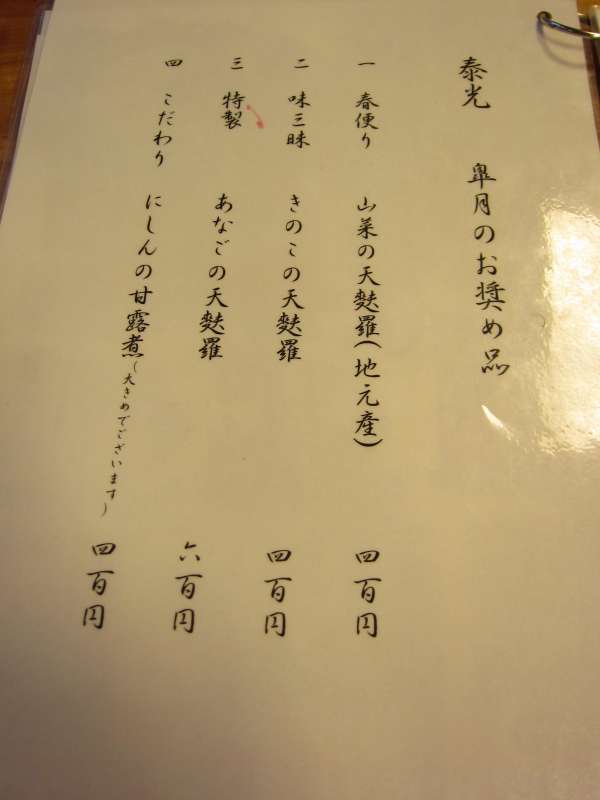 泰光　皐月のお奨め品
一　春便り　山菜の天麩羅（地元産）　四百円
二　味三昧　きのこの天麩羅　四百円
三　特製　あなごの天麩羅　六百円
四　こだわり　にしんの甘露煮（大きめでございます）　四百円